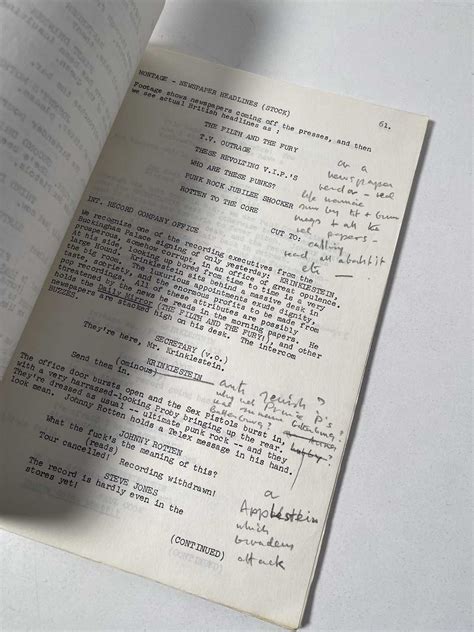 MONTAGE - NEWSPAPER HEADLINES (STOCK)
61.
Footage shows newspapers coming off the presses, and then
we see actual British headlines as :
THE FILTH AND THE FURY
T.V. OUTRAGE
THESE REVOLTING V.I.P.'S
WHO ARE THESE PUNKS?
PUNK ROCK JUBILEE SHOCKER
ROTTEN TO THE CORE
on a
newspaper
all the
papers -
calling
read all about it
etc —
CUT TO:
INT. RECORD COMPANY OFFICE
We recognize one of the recording executives from the
Buckingham Palace signing of only yesterday: KRINKLESTEIN,
prosperous looking, corrupt, in an office of great opulence.
At his side, looking up bored from time to time is a very
large Hound. Krinklestein sits behind a massive desk
taste, and the appointments exude dignity,
society, and the enormous profits to be made from
pop recordings. All of these attributes are possibly
threatened by the news he reads in the morning papers. He
the Daily Mirror (THE FILTH AND THE FURY!) and other
newspapers are stacked high on his desk. The intercom
BUZZES.
SECRETARY (V.O.)
They're here, Mr. Krinklestein.
KRINKLESTEIN
Send them in. (ominous)
anti Jewish?
why not
The office door bursts open and the Sex Pistols burst in,
with a very harrassed-looking Proby bringing up the rear.
They're dressed as usual -- ultimate punk rock -- and they
look mean. Johnny Rotten holds a Telex message in his hand.
JOHNNY ROTTEN
What the fuck's the meaning of this?
(reads) Recording withdrawn!
Tour cancelled!
STEVE JONES
The record is hardly even in the
stores yet!
a
Applestein
which
broadens
attack
(CONTINUED)